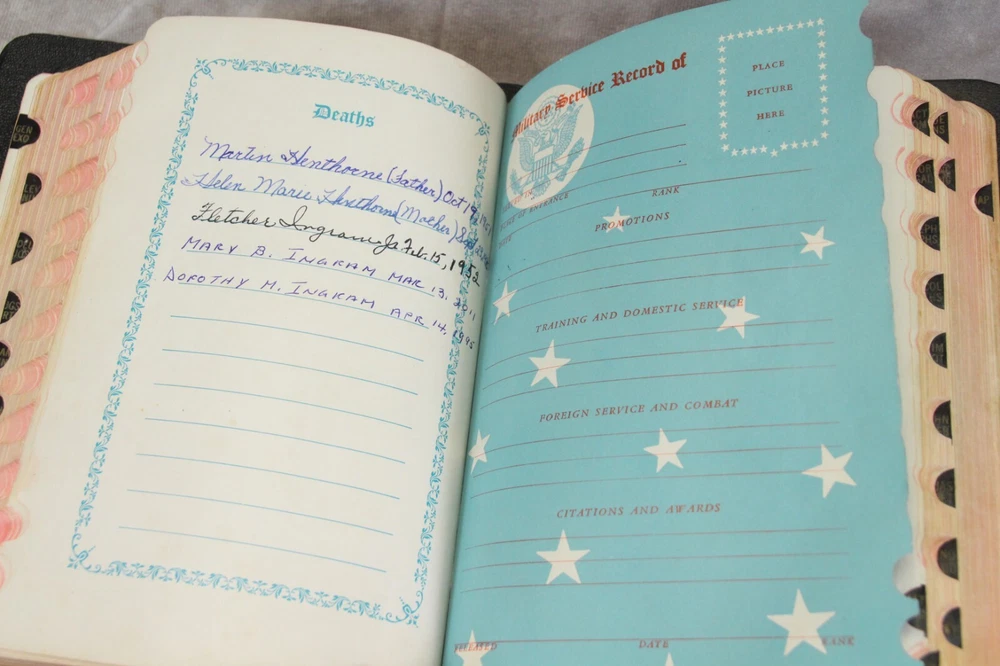 Deaths
Martin Henthorne (Father) Oct 19,
Helen Marie Henthorne (Mother) Sept
Fletcher Ingram Jr Feb. 15, 1952
MARY B. INGRAM MAR 13, 2011
DOROTHY M. INGRAM APR 14, 1995
Military Service Record of
PLACE
PICTURE
HERE
OF ENTRANCE RANK
PROMOTIONS
TRAINING AND DOMESTIC SERVICE
FOREIGN SERVICE AND COMBAT
CITATIONS AND AWARDS
RELEASED DATE RANK
GEN
EXO
AP